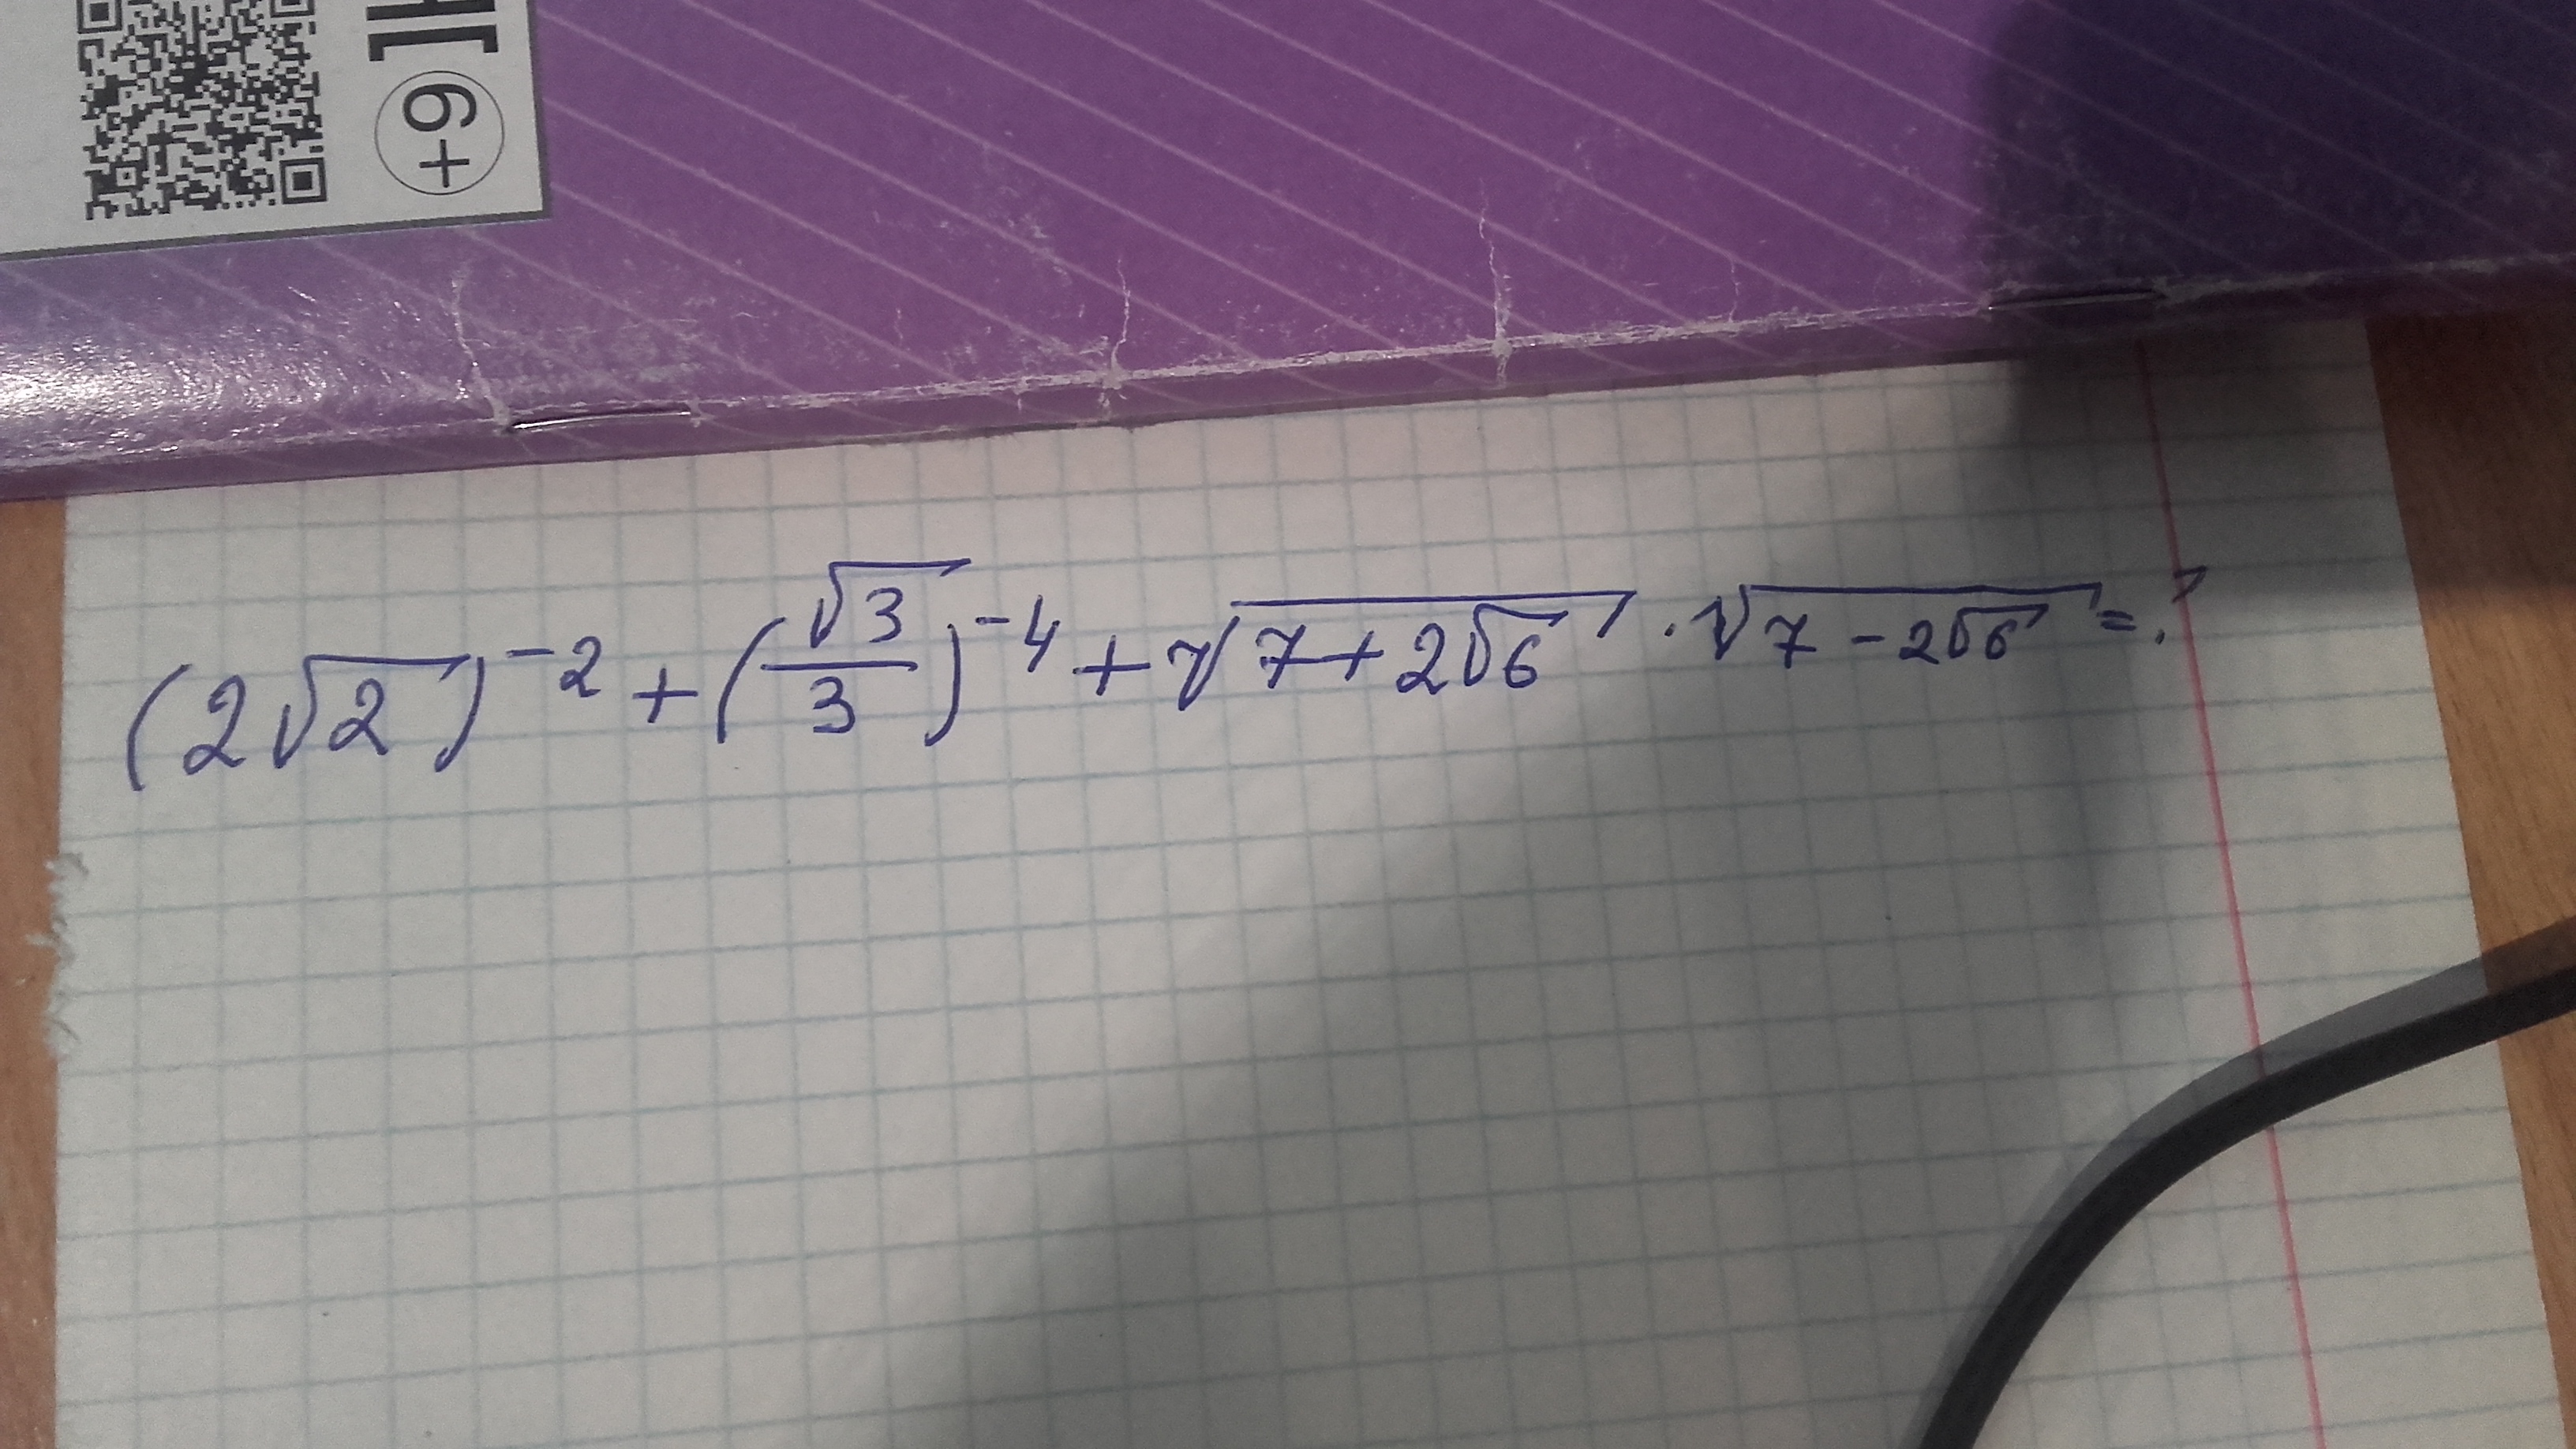 6+
(2√2)^-2 + (√3/3)^-4 + √(7+2√6) · √(7-2√6) = ?